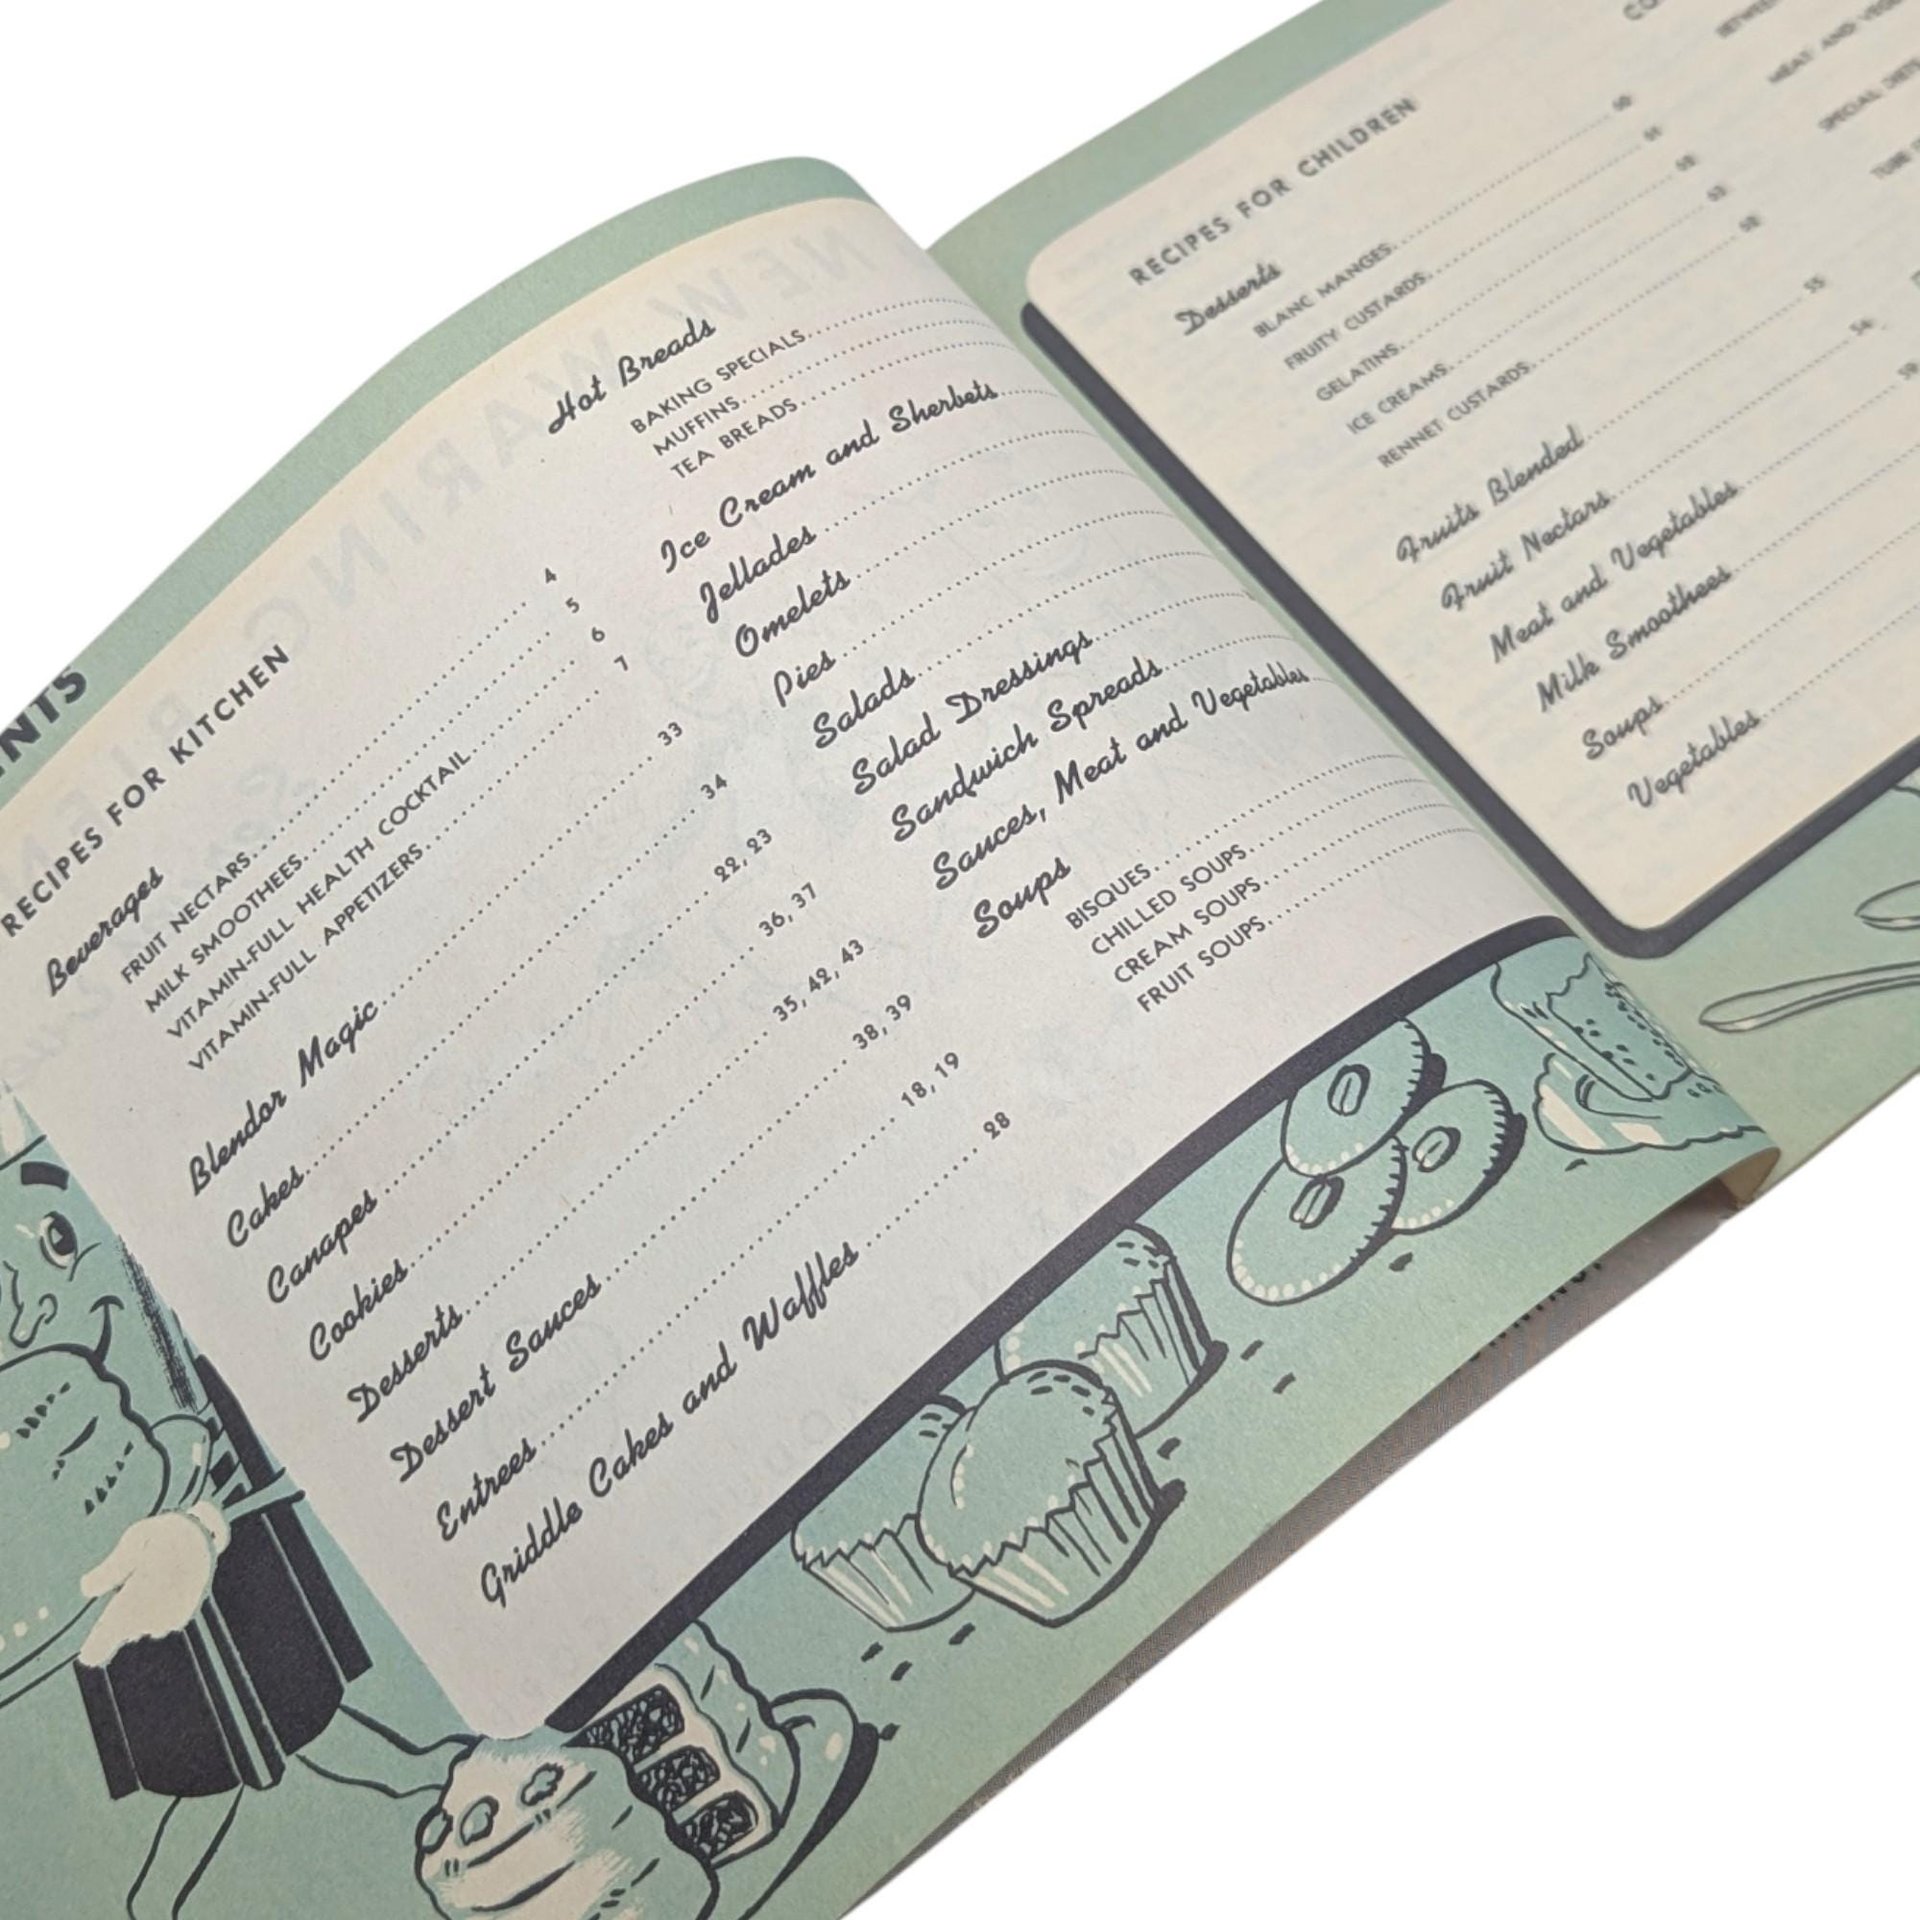 NTS
RECIPES FOR KITCHEN
Beverages
FRUIT NECTARS 4
MILK SMOOTHEES 5
VITAMIN-FULL HEALTH COCKTAIL 6
VITAMIN-FULL APPETIZERS 7
Blendor Magic 33
Cakes 34
Canapes 22, 23
Cookies 36, 37
Desserts 35, 42, 43
Dessert Sauces 38, 39
Entrees 18, 19
Griddle Cakes and Waffles 28
Hot Breads
BAKING SPECIALS
MUFFINS
TEA BREADS
Ice Cream and Sherbets
Jellades
Omelets
Pies
Salads
Salad Dressings
Sandwich Spreads
Sauces, Meat and Vegetables
Soups
BISQUES
CHILLED SOUPS
CREAM SOUPS
FRUIT SOUPS
RECIPES FOR CHILDREN
Desserts
BLANC MANGES
FRUITY CUSTARDS
GELATINS
ICE CREAMS
RENNET CUSTARDS
Fruits Blended 55
Fruit Nectars
Meat and Vegetables
Milk Smoothees
Soups
Vegetables
MEAT AND
SPECIAL DIETS